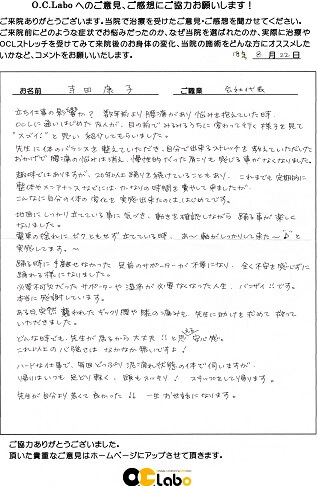 O.C.Labo へのご意見、ご感想にご協力お願いします!
ご来院ありがとうございます。当院にて治療を受けたご意見・ご感想を聞かせてください。
ご来院前にどのような症状でお悩みだったのか、なぜ当院を選ばれたのか、実際に治療や
OCLストレッチを受けてみて来院後のお身体の変化、当院の施術をどんな方にオススメした
いかなど、コメントをお願いいたします。
8月22日
お名前 寺田 康子 ご職業
立ち仕事の影響か? 数年前より腰痛があり悩み抱えていた時、
OCLに通いはじめた友人が、目の前でみるみるうちに変わって行く様子を見て
"スゴイ" と思い 紹介してもらいました。
先生に体のバランスを整えていただき、自分で出来るストレッチを教えていただいた
おかげで腰痛の悩みは消え、慢性的だった肩こりも感じる事がなくなりました。
趣味ではありますが、20年以上踊りを続けていることもあり、これまでも定期的に
整体やメンテナンスなどには、かなりの時間を費やして来ましたが
こんなに自分の体の変化を実感出来たのは、はじめてです。
地面にしっかり立っている事に気づき、動きを確認しながら踊る事が楽しく
なりました。
電車の揺れにビクともせず立てている時、あ〜軸がしっかりして来た〜♪と
実感してます。〜
踊る時に手離せなかった足首のサポーターが不要になり、全く不安を感じずに
踊れる様になりました。
必要不可欠だったサポーターや湿布が必要なくなった人生、バンザイ!!です。
本当に感謝しています。
ある日突然襲われたギックリ腰や膝の痛みも、先生に助けを求めて救って
いただきました。
どんな時でも、先生が居るから大丈夫!!と思える安心感。
これ以上の心強さは なかなか無いですよ!
ハードな仕事で、毎回どっぷり泥酔れ状態の体で伺いますが、
帰りはいつも足どり軽く、頭もスッキリ! ステップをして帰ります。
先生が自分より若くて良かった!! 一生お世話になります。
ご協力ありがとうございました。
頂いた貴重なご意見はホームページにアップさせて頂きます。
OC Labo